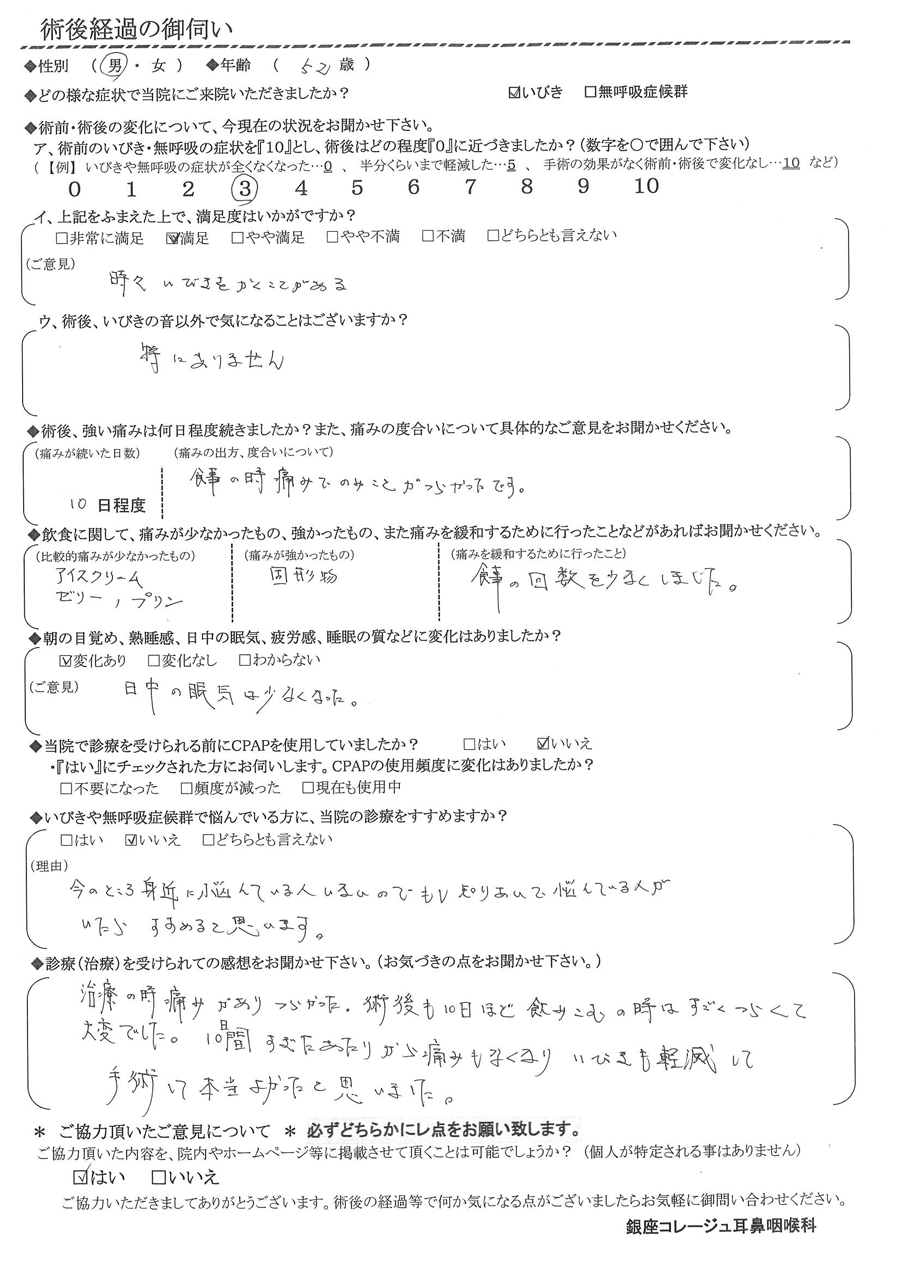 術後経過の御伺い
◆性別 ( 男 ・ 女 ) ◆年齢 ( 52 歳 )
◆どの様な症状で当院にご来院いただきましたか? ☑いびき □無呼吸症候群
◆術前・術後の変化について、今現在の状況をお聞かせ下さい。
ア、術前のいびき・無呼吸の症状を『10』とし、術後はどの程度『0』に近づきましたか?(数字を〇で囲んで下さい)
(【例】 いびきや無呼吸の症状が全くなくなった…0 、 半分くらいまで軽減した…5 、 手術の効果がなく術前・術後で変化なし…10 など)
0 1 2 3 4 5 6 7 8 9 10
イ、上記をふまえた上で、満足度はいかがですか?
□非常に満足 ☑満足 □やや満足 □やや不満 □不満 □どちらとも言えない
(ご意見)
時々 いびきをかくことがある
ウ、術後、いびきの音以外で気になることはございますか?
特にありません
◆術後、強い痛みは何日程度続きましたか?また、痛みの度合いについて具体的なご意見をお聞かせください。
(痛みが続いた日数) (痛みの出方、度合いについて)
食事の時痛みでのみことがつらかったです。
10 日程度
◆飲食に関して、痛みが少なかったもの、強かったもの、また痛みを緩和するために行ったことなどがあればお聞かせください。
(比較的痛みが少なかったもの) (痛みが強かったもの) (痛みを緩和するために行ったこと)
アイスクリーム 固形物 食事の回数を少なくしました。
ゼリー、プリン
◆朝の目覚め、熟睡感、日中の眠気、疲労感、睡眠の質などに変化はありましたか?
☑変化あり □変化なし □わからない
(ご意見) 日中の眠気は少なくなった。
◆当院で診療を受けられる前にCPAPを使用していましたか? □はい ☑いいえ
・『はい』にチェックされた方にお伺いします。CPAPの使用頻度に変化はありましたか?
□不要になった □頻度が減った □現在も使用中
◆いびきや無呼吸症候群で悩んでいる方に、当院の診療をすすめますか?
□はい ☑いいえ □どちらとも言えない
(理由)
今のところ身近に悩んでいる人いないのでもし知りあいで悩んでいる人が
いたら すすめると思います。
◆診療(治療)を受けられての感想をお聞かせ下さい。(お気づきの点をお聞かせ下さい。)
治療の時痛みがありつらかった。術後も10日ほど飲みこむの時はすごくつらくて
大変でした。10日間すぎたあたりから痛みもなくなり いびきも軽減して
手術して本当よかったと思いました。
* ご協力頂いたご意見について * 必ずどちらかにレ点をお願い致します。
ご協力頂いた内容を、院内やホームページ等に掲載させて頂くことは可能でしょうか? (個人が特定される事はありません)
☑はい □いいえ
ご協力いただきましてありがとうございます。術後の経過等で何か気になる点がございましたらお気軽に御問い合わせください。
銀座コレージュ耳鼻咽喉科